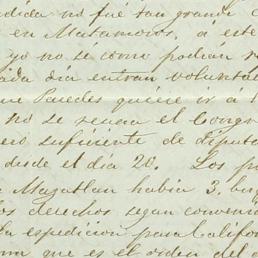 dida no fué tan grande c
en Matamoros, a este
yo no sé como podrian r
ada dia entran volunta
ue Paredes quiere ir á
no se reuna el Congr
ero suficiente de diputa
desde el dia 20. Los p
n Mazatlan habia 3. buq
los derechos segun conveni
la espedicion para Califor
ma que es el orden del